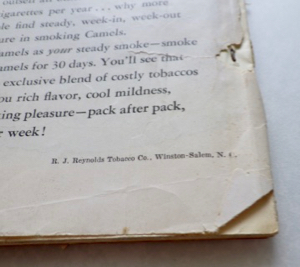 igarettes per year... why more
le find steady, week-in, week-out
ure in smoking Camels.
amels as your steady smoke—smoke
amels for 30 days. You'll see that
exclusive blend of costly tobaccos
ou rich flavor, cool mildness,
ing pleasure—pack after pack,
r week!
R. J. Reynolds Tobacco Co., Winston-Salem, N. C.